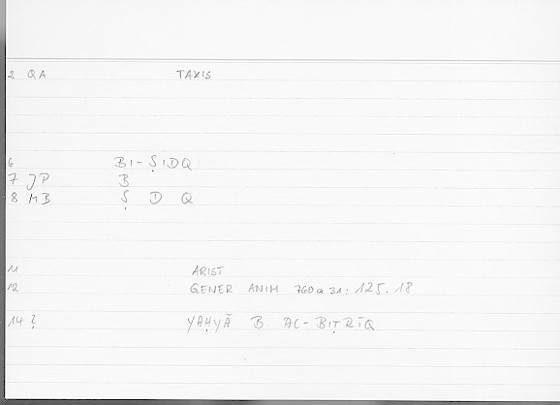 2 QA TAXIS
6 BI-ṢIDQ
7 JP B
8 MB Ṣ D Q
11 ARIST
12 GENER ANIM 760a31: 125.18
14 ? YAḤYĀ B. AL-BIṬRĪQ